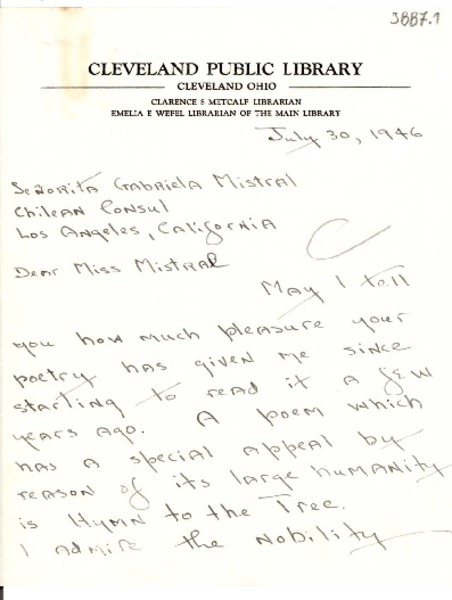 3887.1
CLEVELAND PUBLIC LIBRARY
CLEVELAND OHIO
CLARENCE S METCALF LIBRARIAN
EMELIA E WEFEL LIBRARIAN OF THE MAIN LIBRARY
July 30, 1946
Señorita Gabriela Mistral
Chilean Consul
Los Angeles, California
Dear Miss Mistral
May I tell
you how much pleasure your
poetry has given me since
starting to read it a few
years ago. A poem which
has a special appeal by
reason of its large humanity
is Hymn to the Tree.
I admire the nobility